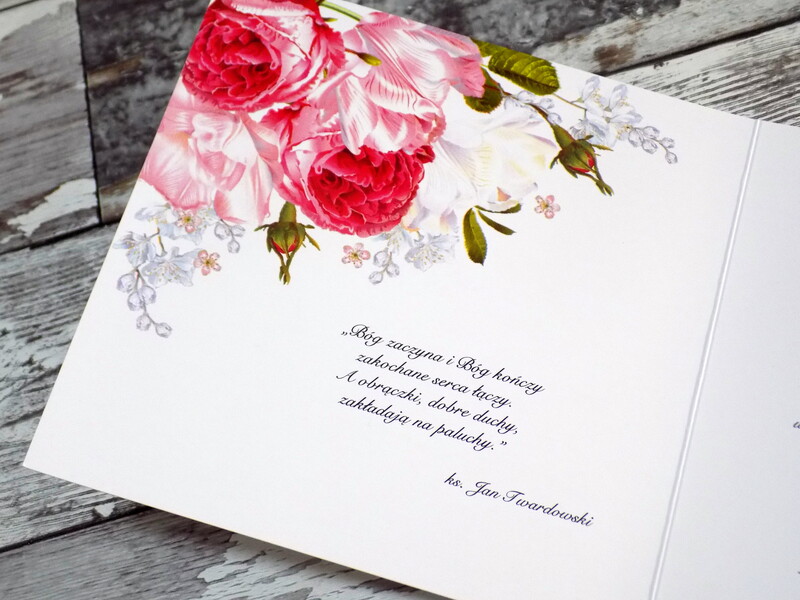 „Bóg zaczyna i Bóg kończy
zakochane serca łączy.
A obrączki, dobre duchy,
zakładają na paluchy.”
ks. Jan Twardowski